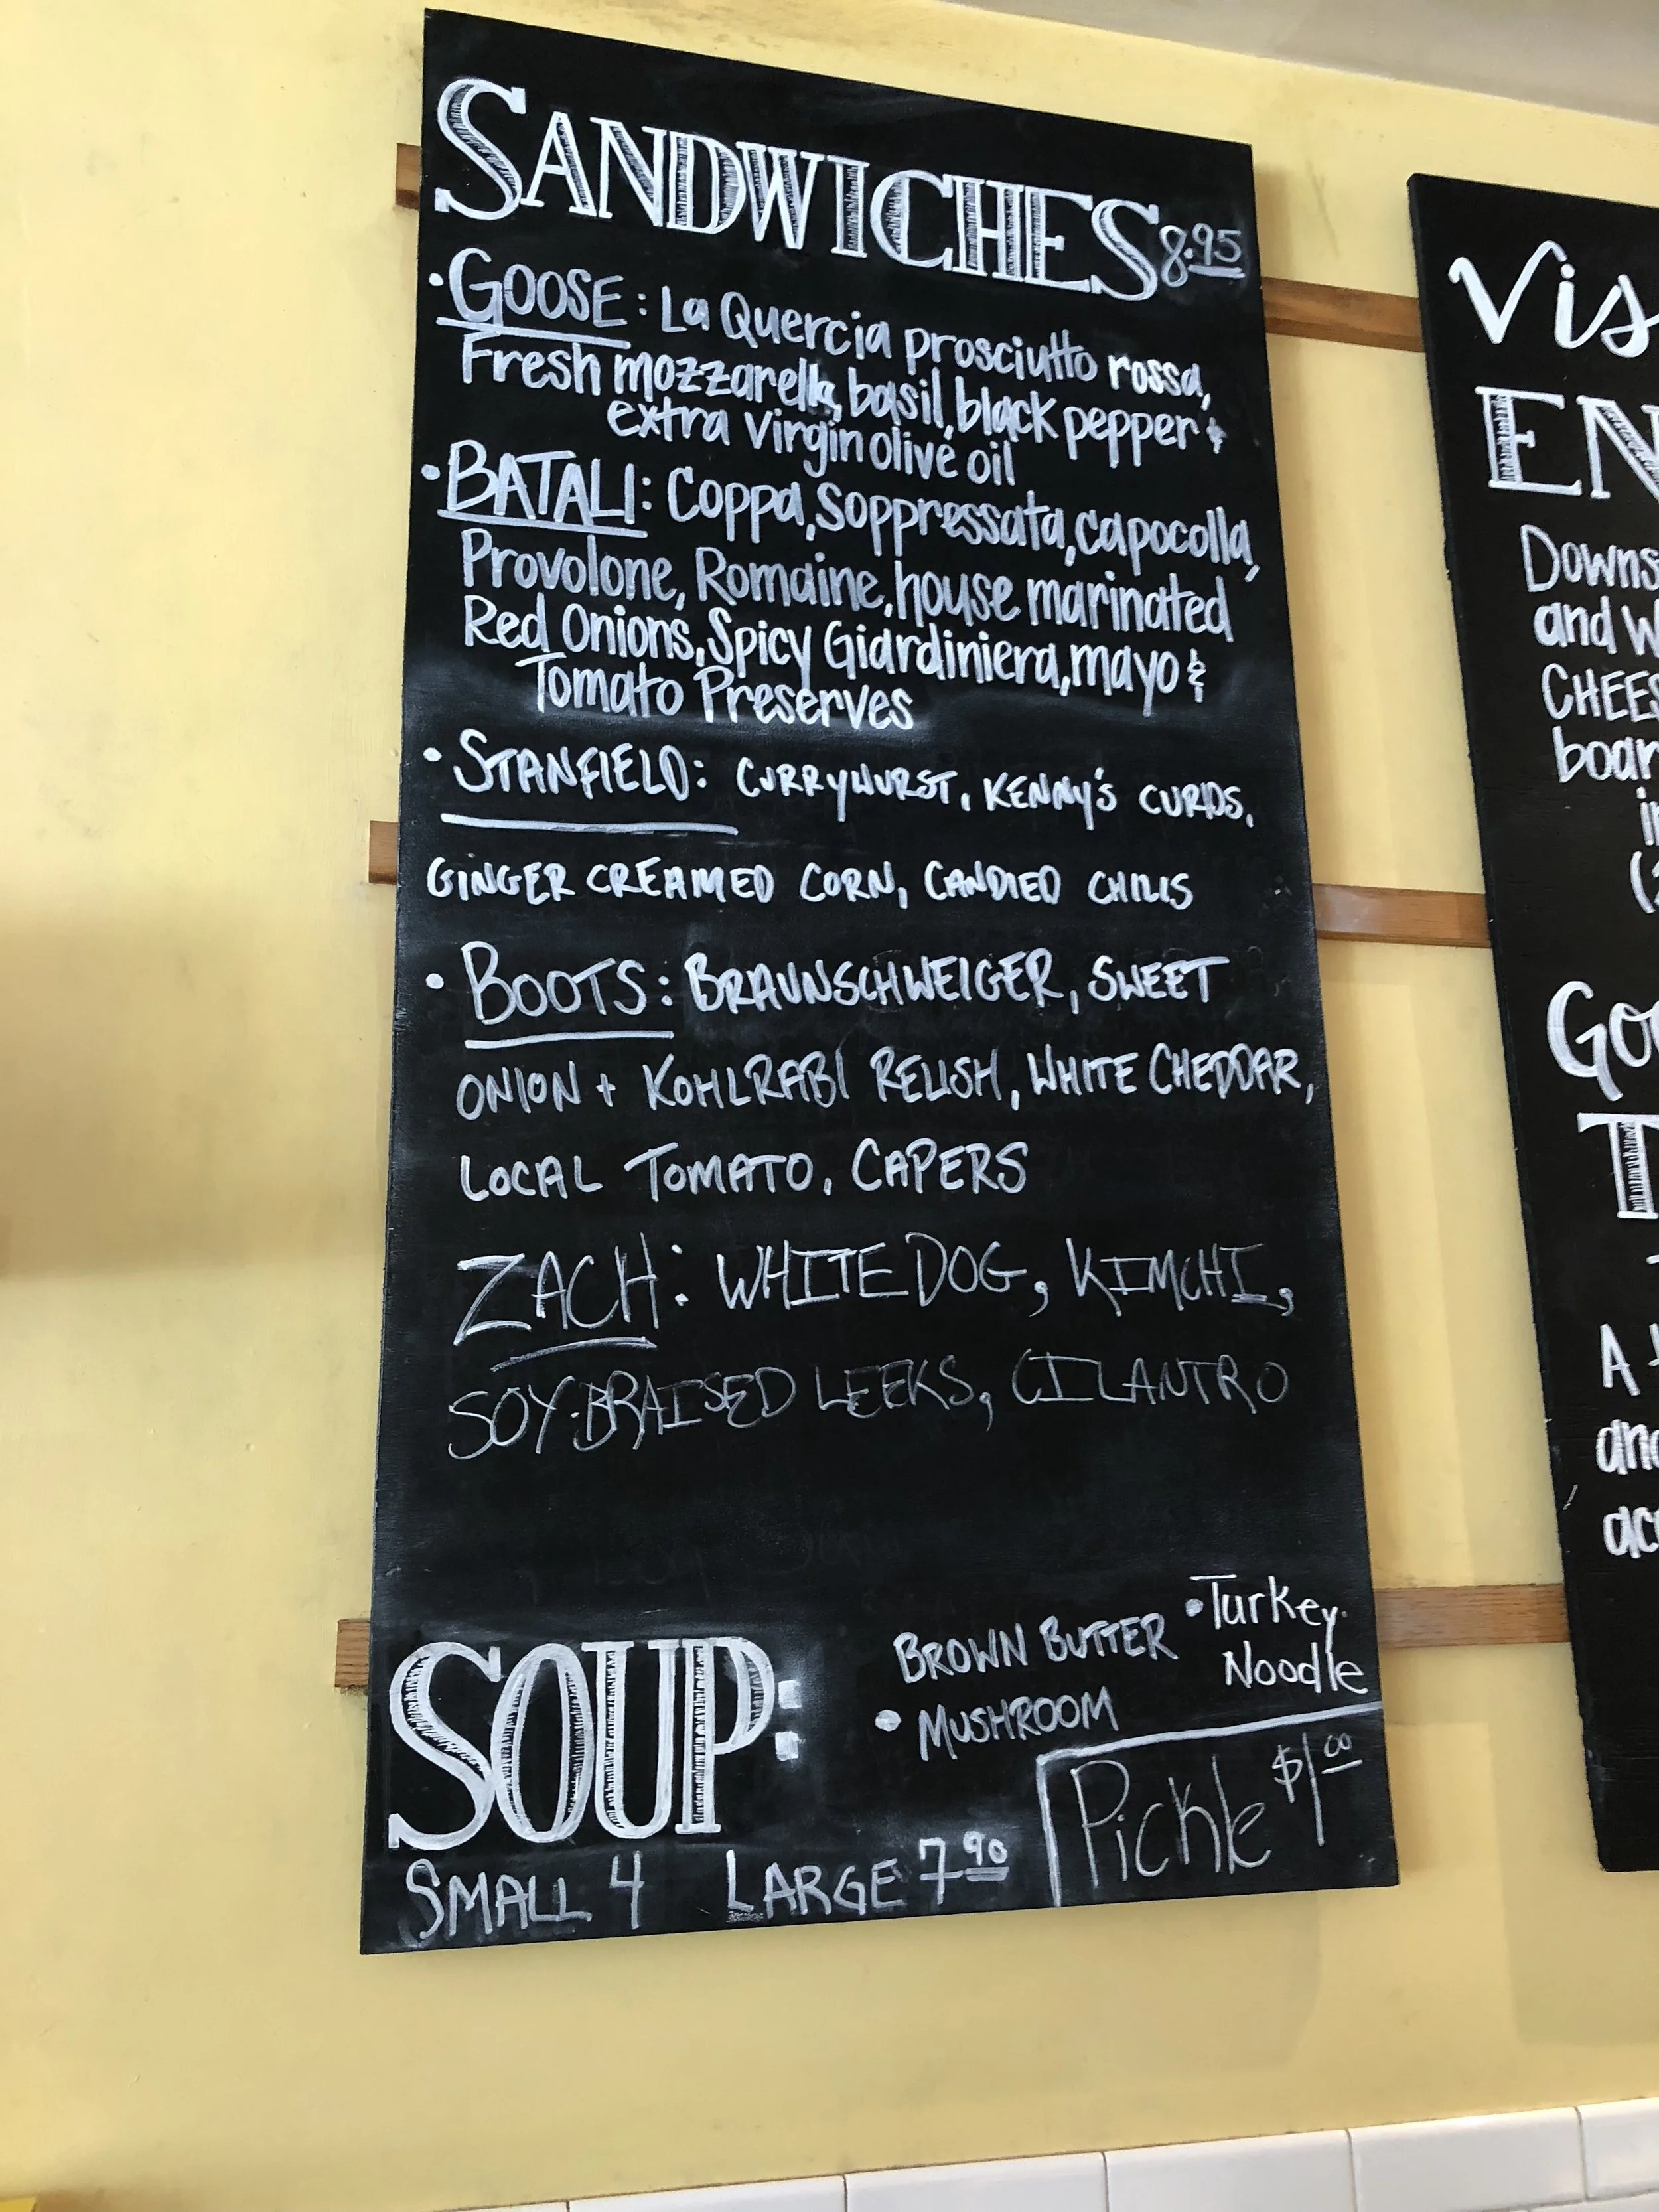 SANDWICHES 8.95
• GOOSE: La Quercia prosciutto rossa,
Fresh mozzarella, basil, black pepper &
extra virgin olive oil
• BATALI: Coppa, Soppressata, capocolla,
Provolone, Romaine, house marinated
Red Onions, Spicy Giardiniera, mayo &
Tomato Preserves
• STANFIELD: CURRYWURST, KENNY'S CURDS,
GINGER CREAMED CORN, CANDIED CHILIS
• BOOTS: BRAUNSCHWEIGER, SWEET
ONION + KOHLRABI RELISH, WHITE CHEDDAR,
LOCAL TOMATO, CAPERS
ZACH: WHITE DOG, KIMCHI,
SOY-BRAISED LEEKS, CILANTRO
SOUP:
BROWN BUTTER
• MUSHROOM
• Turkey
Noodle
SMALL 4 LARGE 7.90
Pickle $1.00
Vis
EN
Downs
and W
CHEES
boar
in
Goo
T
A
and
acc